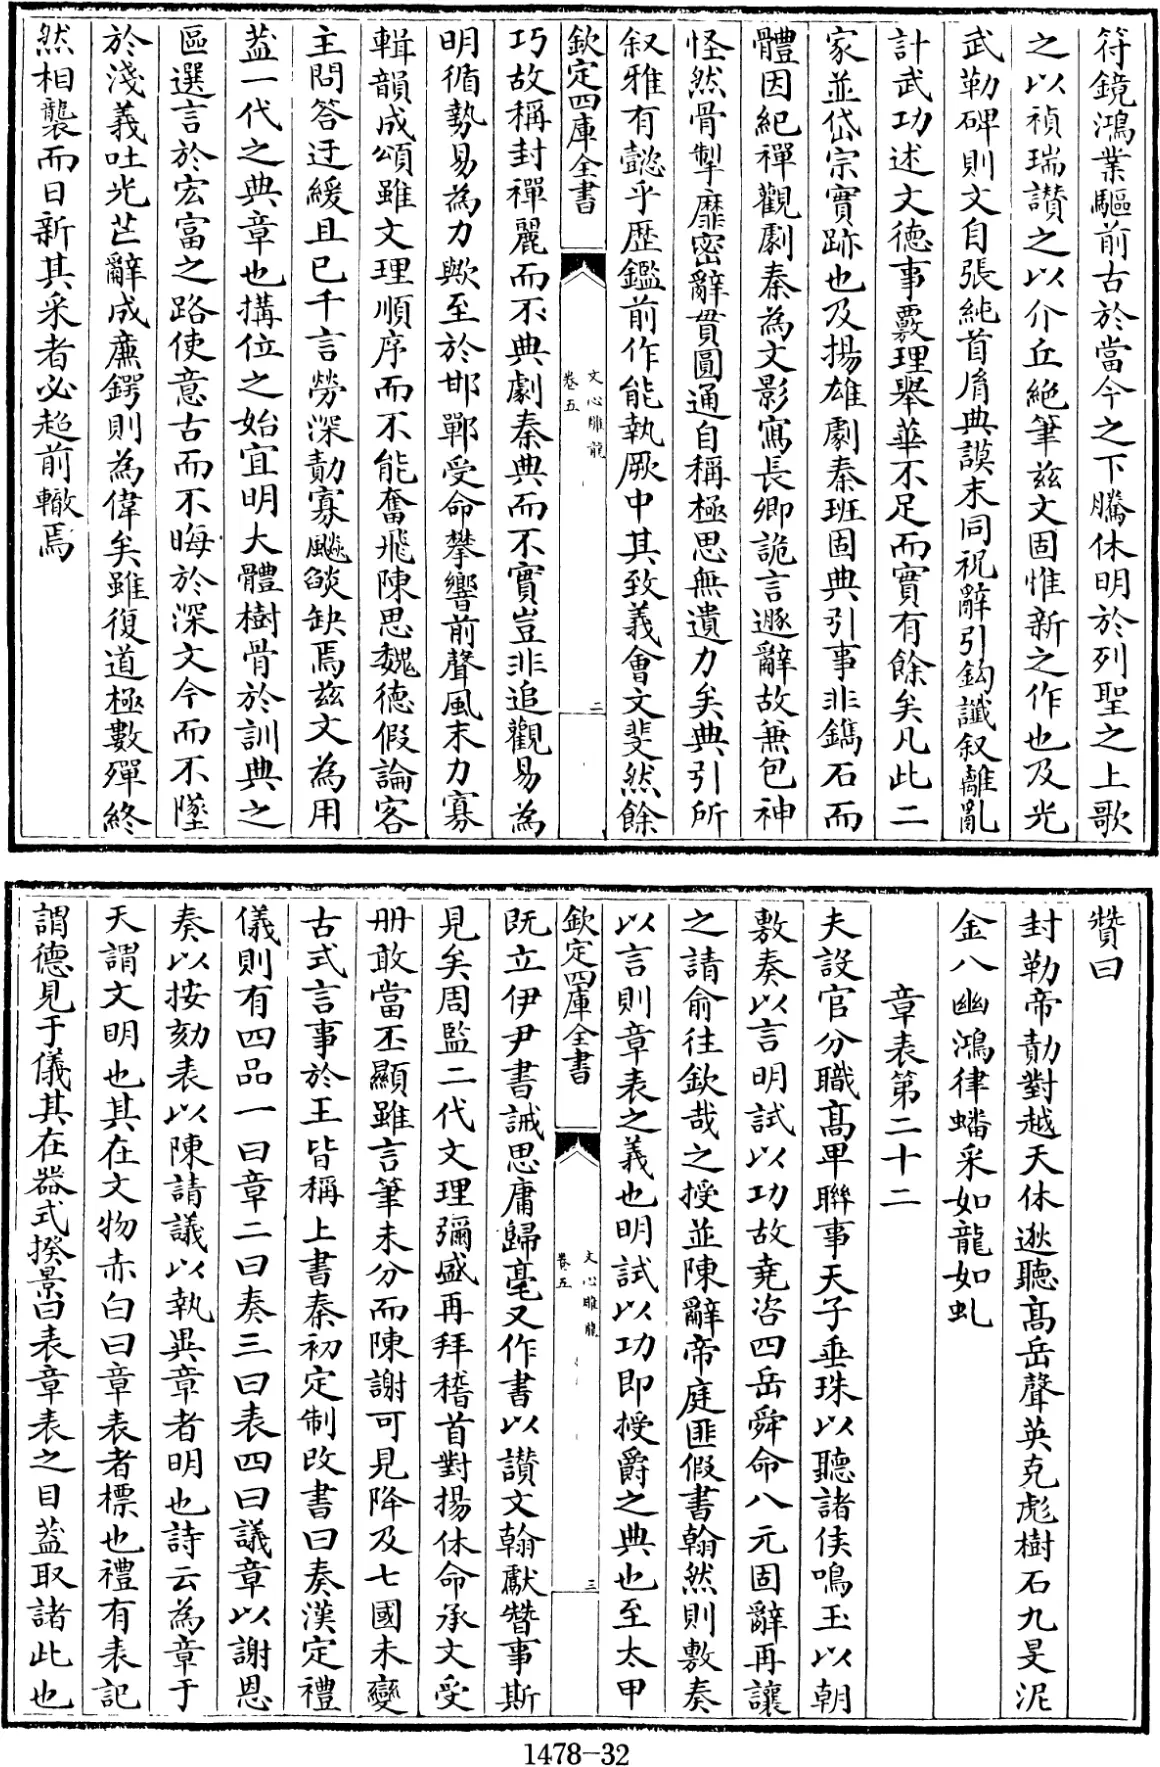 符鏡鴻業驅前古於當今之下騰休明於列聖之上歌
之以禎瑞讃之以介丘絶筆兹文固惟新之作也及光
武勒碑則文自張純首胤典謨末同祝辭引鈎䜟叙離亂
計武功述文德事覈理舉華不足而實有餘矣凡此二
家並岱宗實跡也及揚雄劇秦班固典引事非鐫石而
體因紀禪觀劇秦為文影寫長卿詭言遯辭故兼包神
怪然骨掣靡密辭貫圓通自稱極思無遺力矣典引所
叙雅有懿乎歴鑑前作能執厥中其致義會文斐然餘
欽定四庫全書
文心雕龍
卷五
二
巧故稱封禪麗而不典劇秦典而不實豈非追觀易為
明循勢易為力歟至於邯鄲受命攀響前聲風末力寡
輯韻成頌雖文理順序而不能奮飛陳思魏德假論客
主問答迂緩且已千言勞深勣寡飈燄缺焉兹文為用
葢一代之典章也搆位之始宜明大體樹骨於訓典之
區選言於宏富之路使意古而不晦於深文今而不墜
於淺義吐光芒辭成廉鍔則為偉矣雖復道極數殫終
然相襲而日新其采者必超前轍焉
贊曰
封勒帝勣對越天休逖聽髙岳聲英克彪樹石九旻泥
金八幽鴻律蟠采如龍如虬
章表第二十二
夫設官分職髙卑聯事天子垂珠以聽諸侯鳴玉以朝
敷奏以言明試以功故堯咨四岳舜命八元固辭再讓
之請俞往欽哉之授並陳辭帝庭匪假書翰然則敷奏
以言則章表之義也明試以功即授爵之典也至太甲
欽定四庫全書
文心雕龍
卷五
三
既立伊尹書誡思庸歸亳又作書以讃文翰獻替事斯
見矣周監二代文理彌盛再拜稽首對揚休命承文受
册敢當丕顯雖言筆未分而陳謝可見降及七國未變
古式言事於王皆稱上書秦初定制改書曰奏漢定禮
儀則有四品一曰章二曰奏三曰表四曰議章以謝恩
奏以按劾表以陳請議以執異章者明也詩云為章于
天謂文明也其在文物赤白曰章表者標也禮有表記
謂德見于儀其在器式揆景曰表章表之目葢取諸此也
1478-32